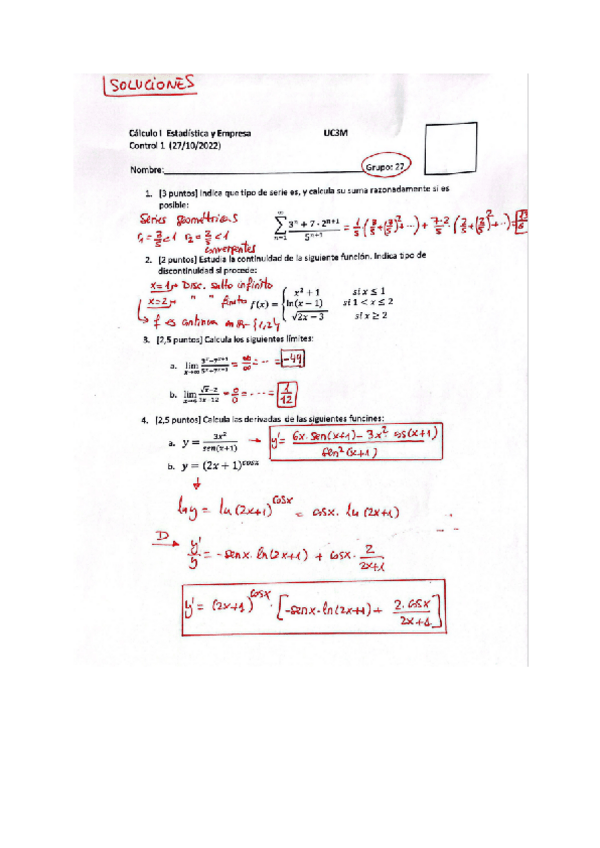 SOLUCIONES
Cálculo I Estadística y Empresa UC3M
Control 1 (27/10/2022)
Nombre: Grupo: 27
1. [3 puntos] Indica que tipo de serie es, y calcula su suma razonadamente si es
posible:
Series geométricas
r₁ = 3/5 < 1 r₂ = 2/5 < 1
convergentes
∑_{n=1}^{∞} (3ⁿ + 7·2ⁿ⁺¹)/5ⁿ⁺¹ = 1/5·(3/5 + (3/5)² + ···) + 7·2/5·(2/5 + (2/5)² + ···) =
2. [2 puntos] Estudia la continuidad de la siguiente función. Indica tipo de
discontinuidad si procede:
x=1 → Disc. salto infinito
x=2 → " " finito
f(x) = { x² + 1 si x ≤ 1
ln(x − 1) si 1 < x ≤ 2
√(2x − 3) si x ≥ 2
↳ f es continua en ℝ-{1,2}
3. [2,5 puntos] Calcula los siguientes límites:
a. lim = ∞/∞ = ··· = -49
b. lim = 0/0 = ··· = 1/12
4. [2,5 puntos] Calcula las derivadas de las siguientes funcines:
a. y = 3x²/sen(x+1) → y' = (6x·sen(x+1) − 3x²·cos(x+1))/sen²(x+1)
b. y = (2x + 1)^cosx
↓
ln y = ln(2x+1)^cosx = cosx · ln(2x+1)
D → y'/y = -senx·ln(2x+1) + cosx · 2/(2x+1)
y' = (2x+1)^cosx · [-senx·ln(2x+1) + 2·cosx/(2x+1)]